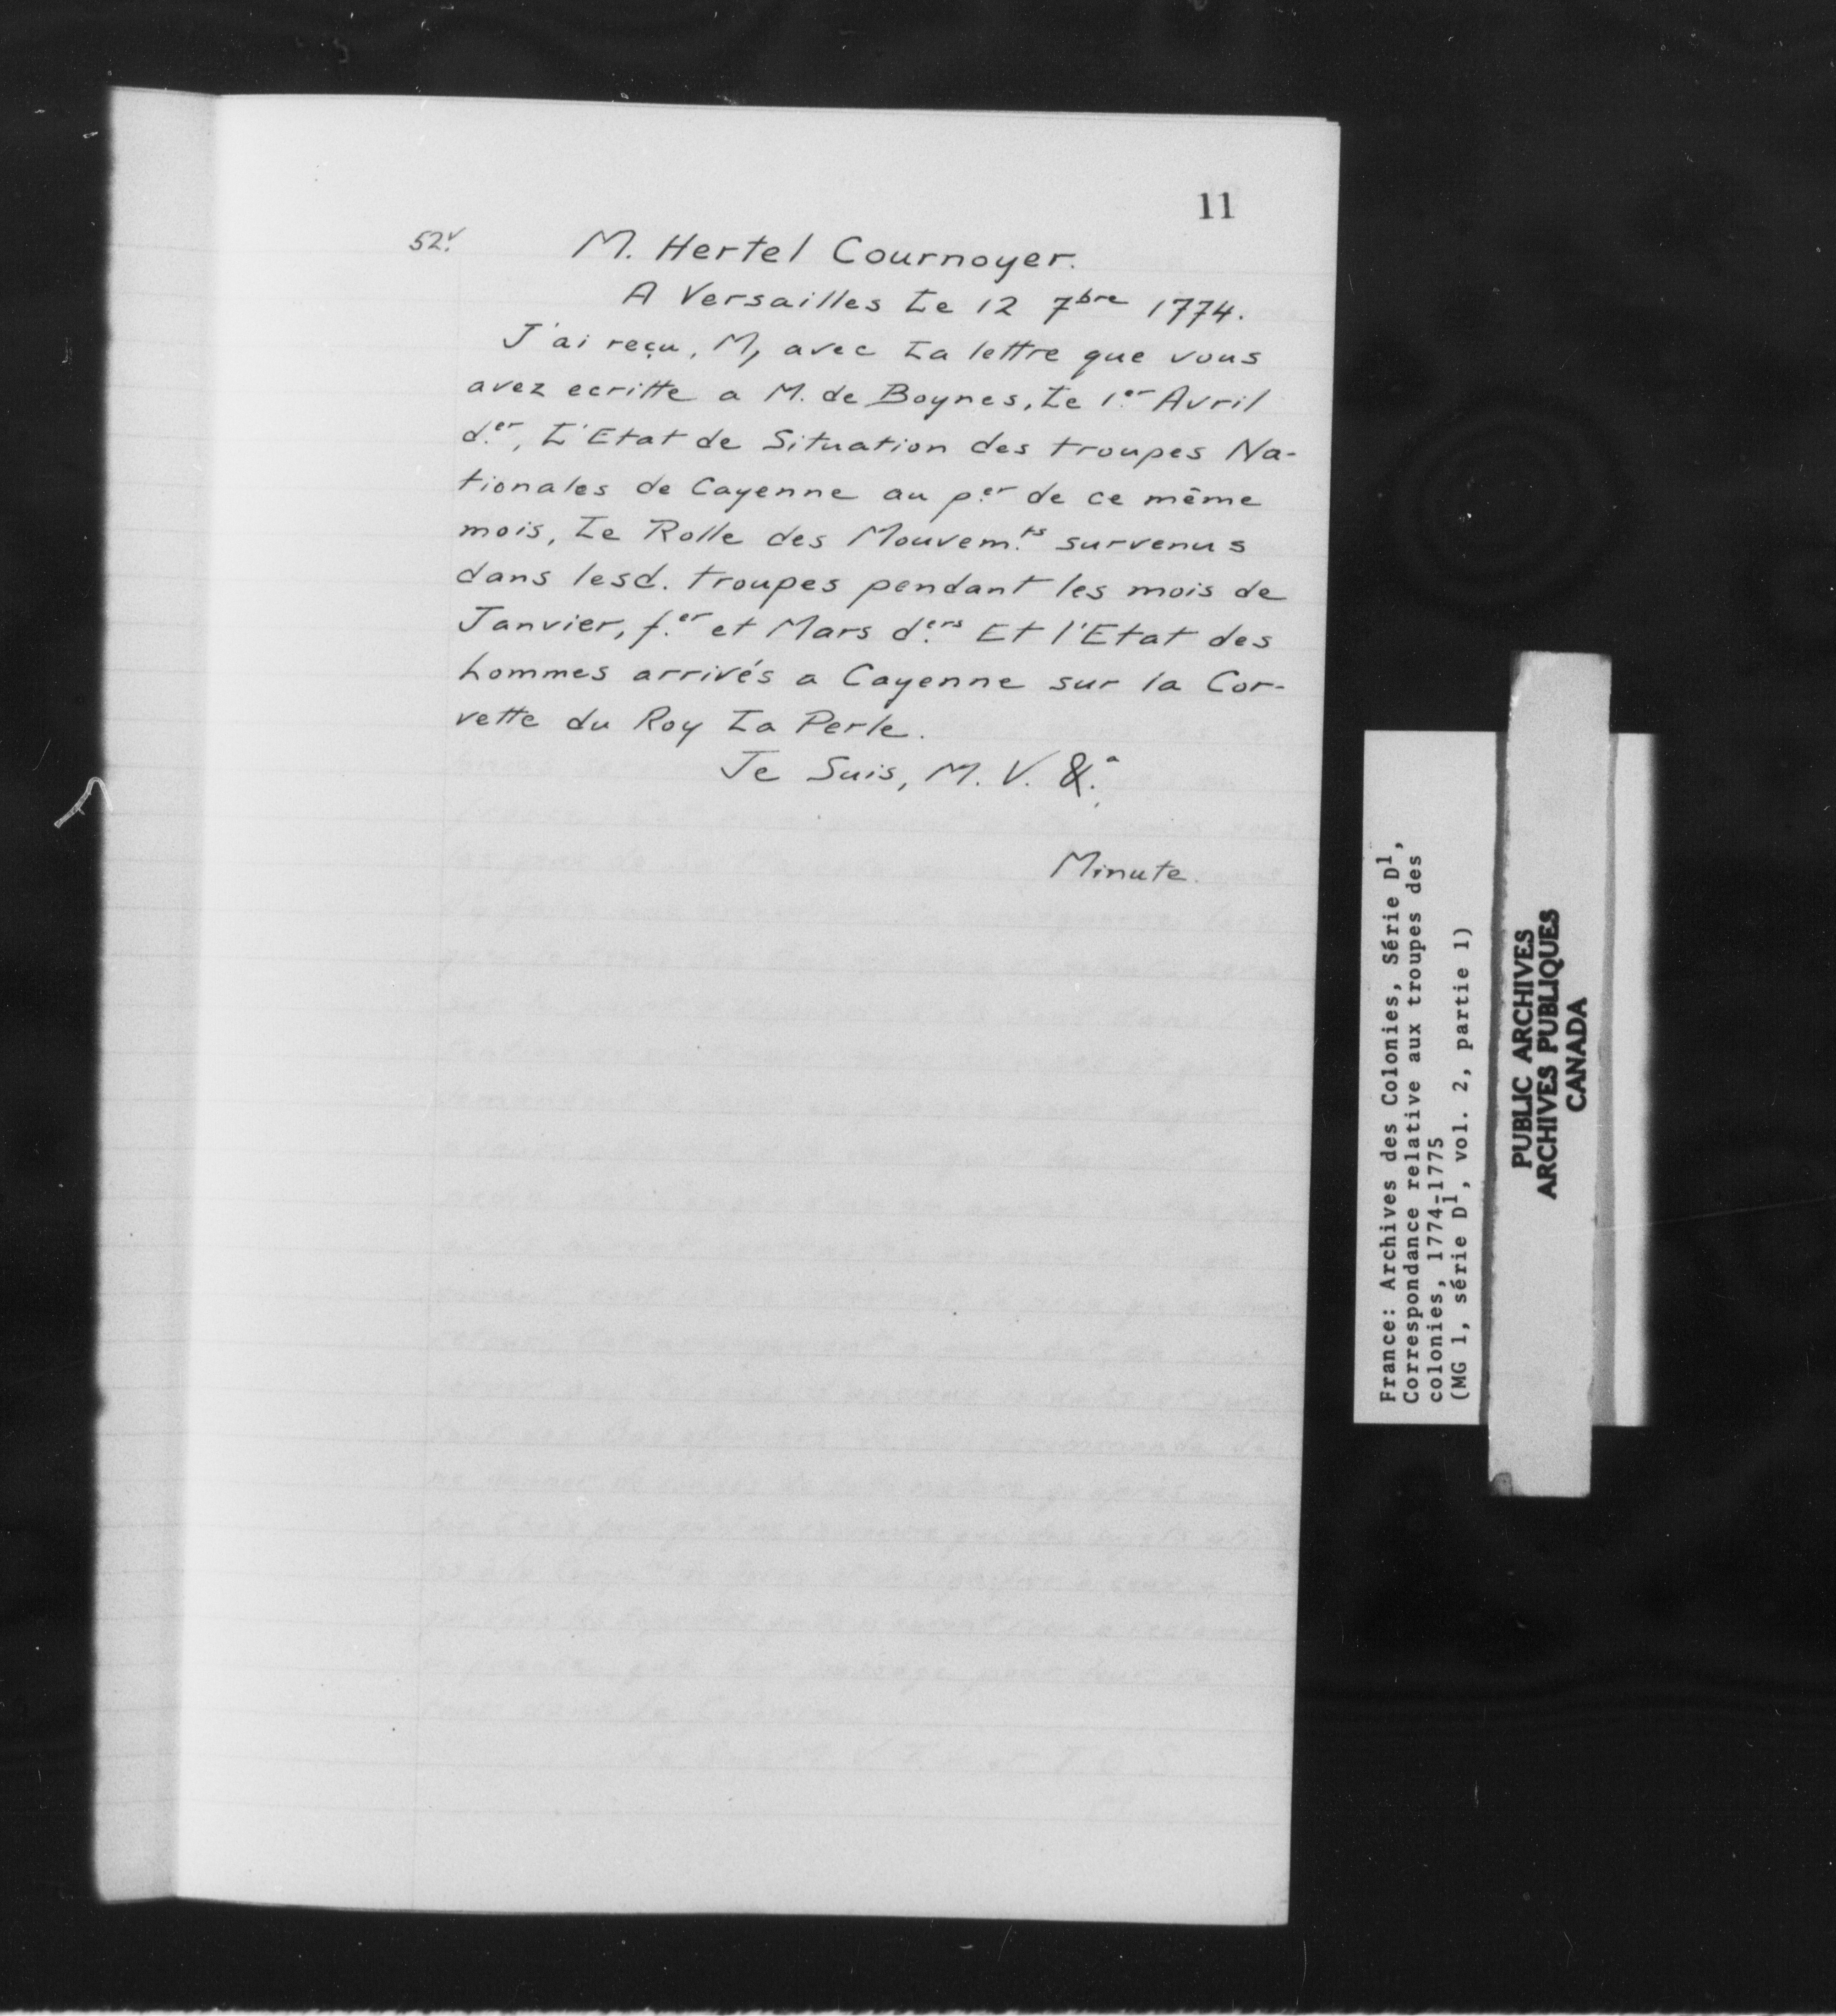 11
52.v
M. Hertel Cournoyer.
A Versailles Le 12 7bre 1774.
J'ai reçu, M, avec La lettre que vous
avez ecritte a M. de Boynes, Le 1.er Avril
d.er, L'Etat de Situation des troupes Na-
tionales de Cayenne au p.er de ce même
mois, Le Rolle des Mouvem.ts survenus
dans lesd. troupes pendant les mois de
Janvier, f.er et Mars d.ers Et l'Etat des
hommes arrivés a Cayenne sur la Cor-
vette du Roy La Perle.
Je Suis, M. V. &.a
Minute.
France: Archives des Colonies, Série D1,
Correspondance relative aux troupes des
colonies, 1774-1775
(MG 1, série D1, vol. 2, partie 1)
PUBLIC ARCHIVES
ARCHIVES PUBLIQUES
CANADA